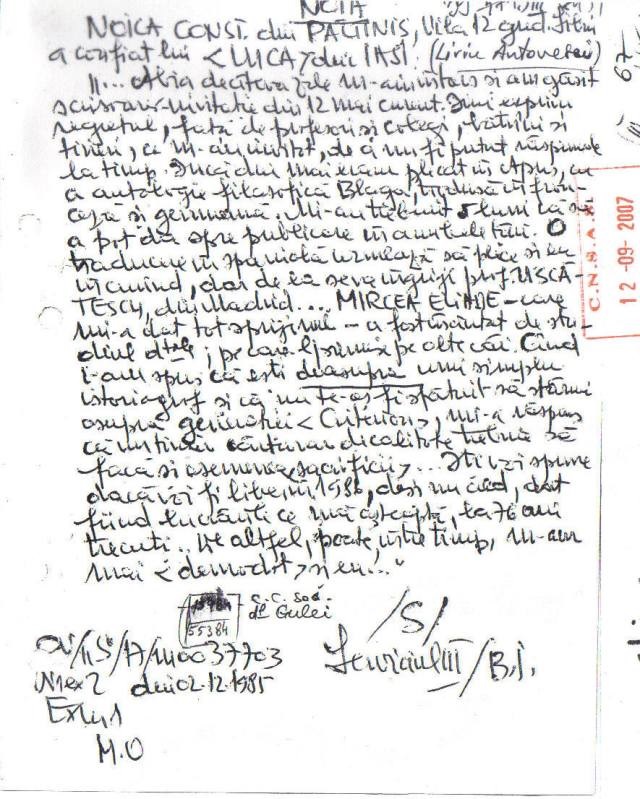 NOTA
NOICA CONST. din PĂLTINIS, Vila 12 jud. Sibiu
a confiat lui <LUCA> din IASI. (Liviu Antonesei)
"... Abia de cîteva zile m-am întors si am găsit
scrisoarea-invitatie din 12 mai curent. Îmi exprim
regretul, fată de profesori si colegi, bătrîni si
tineri, ce m-au invitat, de a nu fi putut răspunde
la timp. Încă din mai eram plecat în Apus, cu
o antologie filosofică Blaga, tradusă în fran-
ceză si germană. Mi-au trebuit 5 luni ca să
o pot da spre publicare în ambele tări. O
traducere în spaniolă urmează să plece si ea
în curînd, dar de ea se va îngriji prof. USCĂ-
TESCU, din Madrid... MIRCEA ELIADE - care
mi-a dat tot sprijinul - a fost încîntat de stu-
diul dtale; pe care-l primise pe alte căi. Cînd
i-am spus că esti deasupra unui simplu
istoriograf si că nu te-as fi sfătuit să stărui
asupra generatiei <Criterion>, mi-a răspuns
că un tînăr cărturar de calitate trebuie să
facă si asemenea <sacrificii>... Îti voi spune
dacă voi fi liber în 1986, desi nu cred, dat
fiind lucrările ce mă asteaptă, la 76 ani
trecuti... De altfel, poate, între timp, m-am
mai <demodat> si eu..."
C.C. Sod.
dl Gulei
55384
/S/
Serviciul III/B.I.
OV/IIS/17/M0037703
din 02.12.1985
Ex. 1
M.O
67
C.N.S.A.S.
12-09-2007